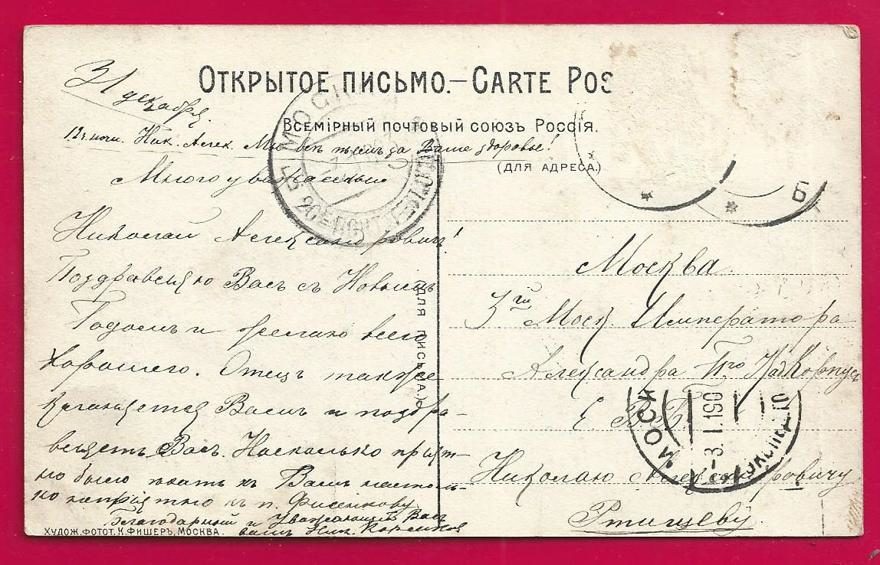 ОТКРЫТОЕ ПИСЬМО.–CARTE POS
ВСЕМІРНЫЙ ПОЧТОВЫЙ СОЮЗЪ РОССІЯ.
(ДЛЯ АДРЕСА)
31 декабря.
12 ч. ночи. Ник. Алек. Мы все пьемъ за Ваше здоровье!
Многоуважаемый
Николай Александровичъ!
Поздравляю Васъ съ Новымъ
Годомъ и желаю всего
хорошаго. Отецъ также
кланяется Вамъ и поздра-
вляетъ Васъ. Насколько пріят-
но было ехать къ Вамъ настоль-
ко непріятно къ п. Фисенкову
Благодарный и уважающій Васъ
вамъ Ник.
ДЛЯ ПИСЬМА.
Москва.
3го Моск. Императора
Александра IIго Кад. Корпусъ
Е. В. Б.
Николаю Александровичу
Ртищеву.
МОСК
-3.1.1905
Б
ХУДОЖ. ФОТОТ. К. ФИШЕРЪ, МОСКВА.